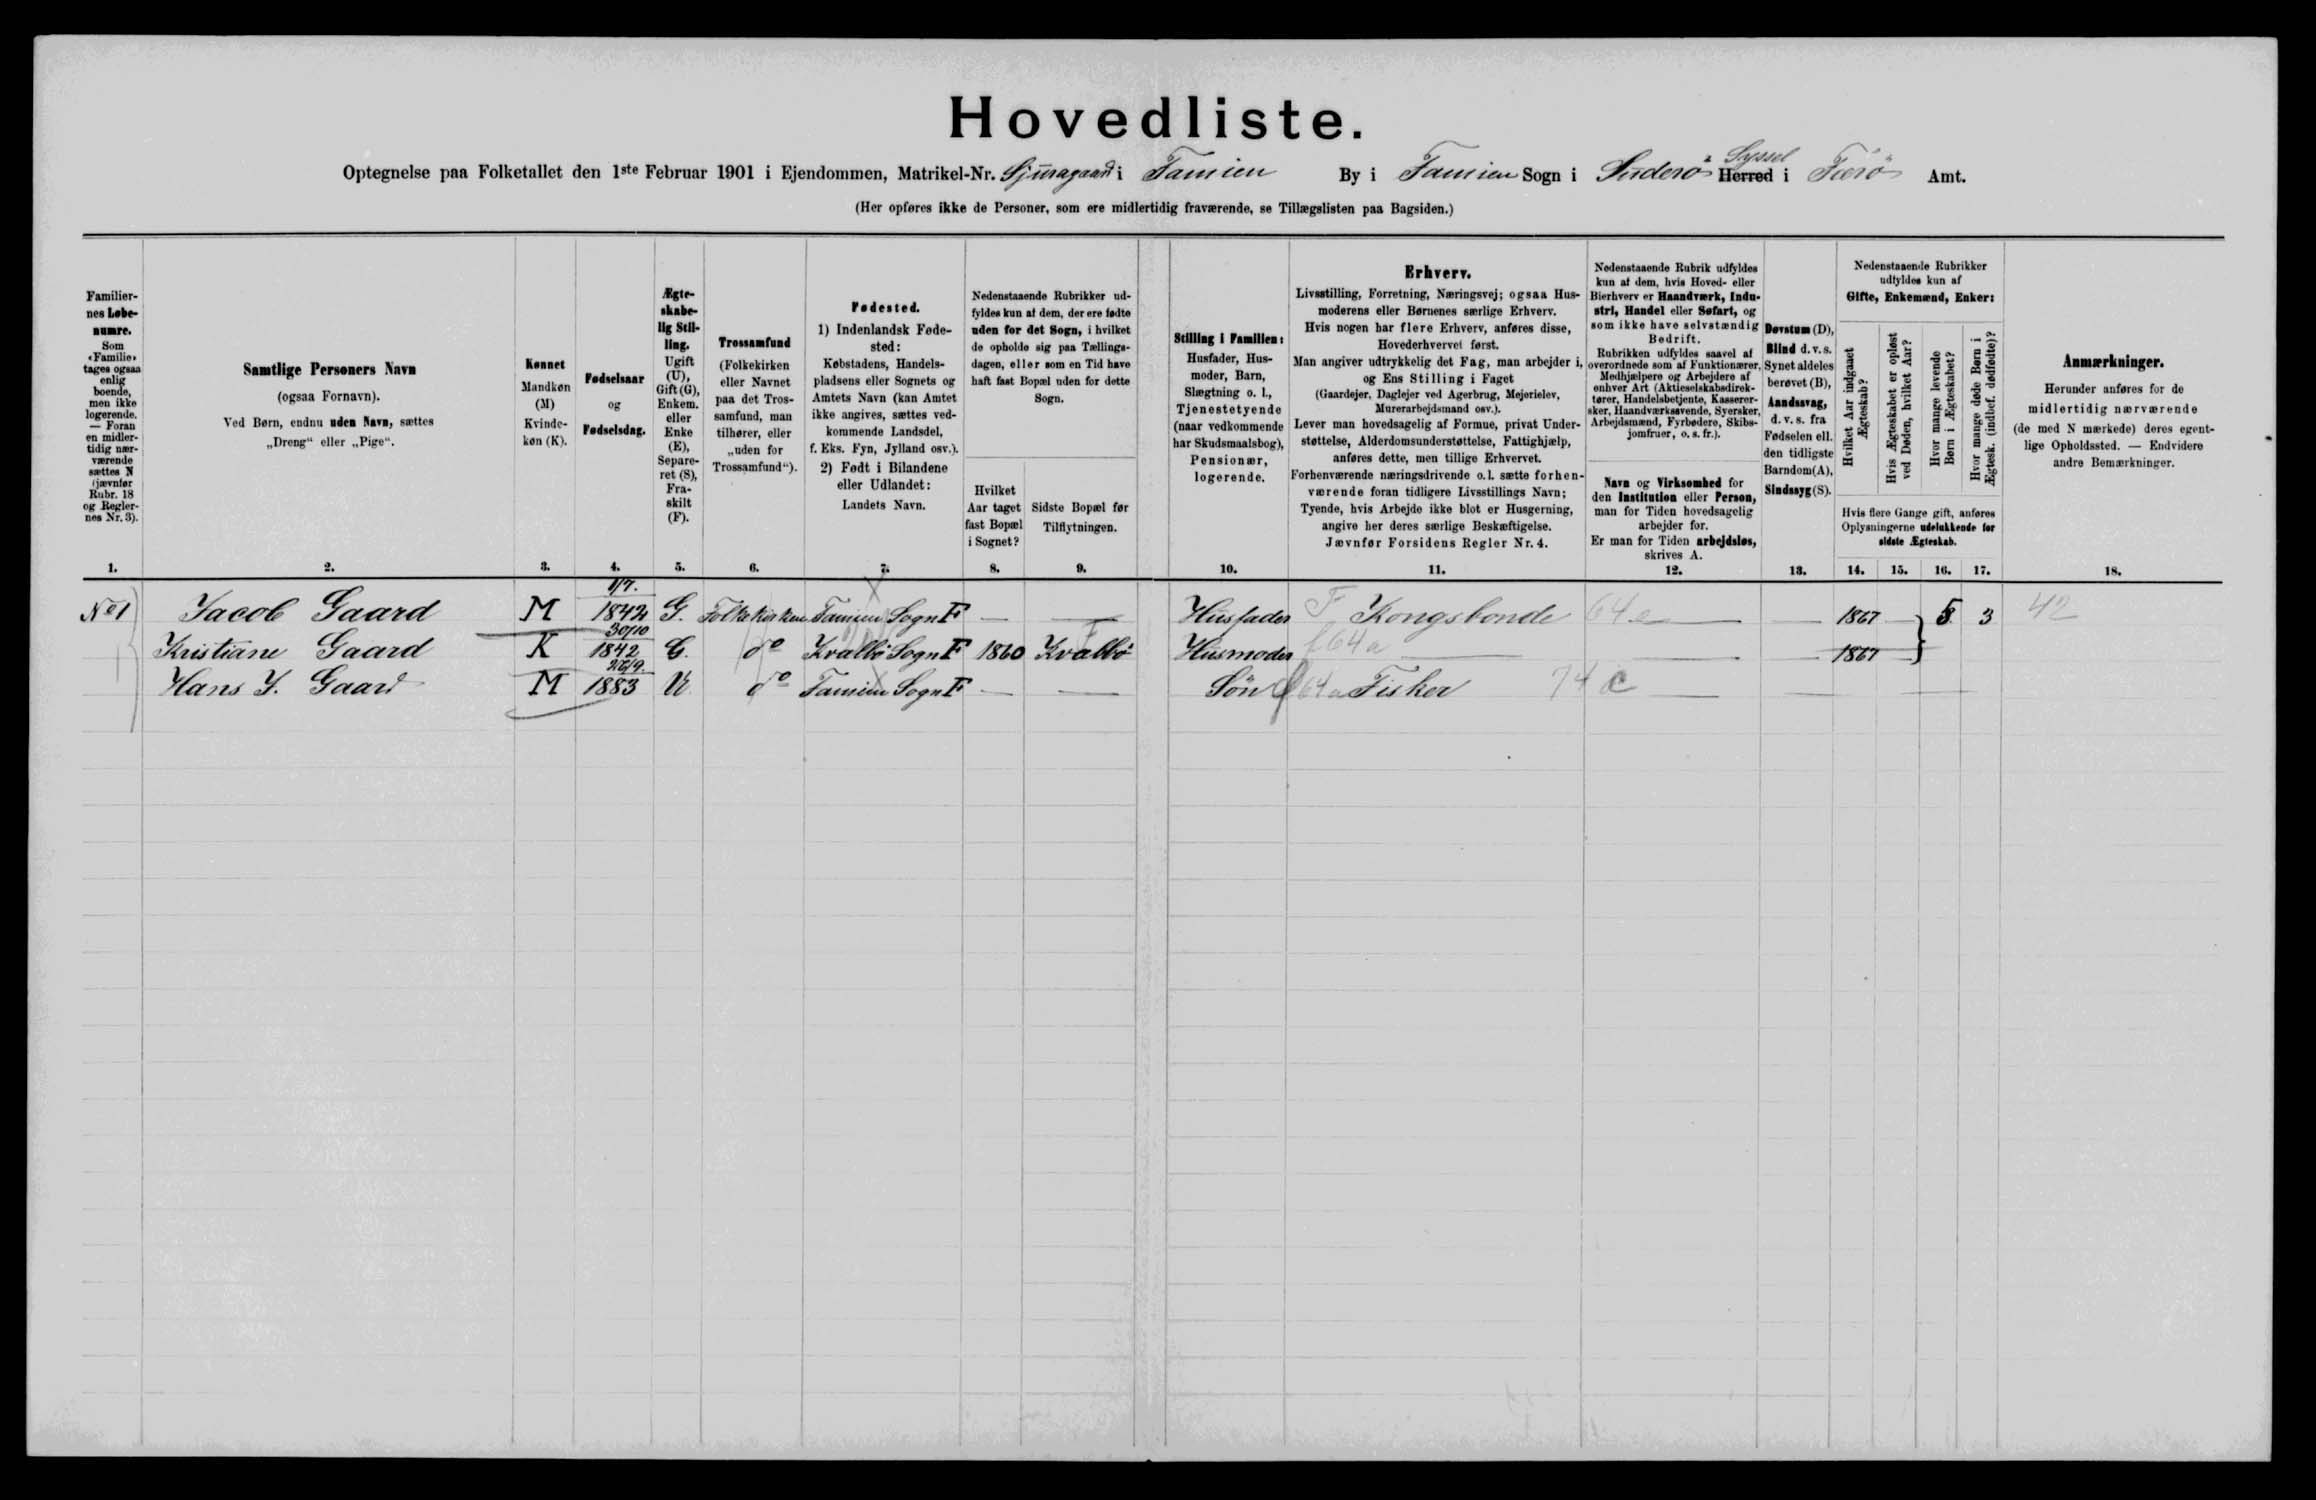 Hovedliste.
Optegnelse paa Folketallet den 1ste Februar 1901 i Ejendommen, Matrikel-Nr. Sjúragaard i Famien By i Famien Sogn i Suderø Syssel Herred i Færø Amt.
(Her opføres ikke de Personer, som ere midlertidig fraværende, se Tillægslisten paa Bagsiden.)
Familier-
nes Løbe-
numre.
Som
«Familie»
tages ogsaa
enlig
boende,
men ikke
logerende.
— Foran
en midler-
tidig nær-
værende
sættes N
(jævnfør
Rubr. 18
og Regler-
nes Nr. 3).
1.
Samtlige Personers Navn
(ogsaa Fornavn).
Ved Børn, endnu uden Navn, sættes
„Dreng“ eller „Pige“.
2.
Kønnet
Mandkøn
(M)
Kvinde-
køn (K).
3.
Fødselsaar
og
Fødselsdag.
4.
Ægte-
skabe-
lig Stil-
ling.
Ugift
(U),
Gift (G),
Enkem.
eller
Enke
(E),
Separe-
ret (S),
Fra-
skilt
(F).
5.
Trossamfund
(Folkekirken
eller Navnet
paa det Tros-
samfund, man
tilhører, eller
„uden for
Trossamfund“).
6.
Fødested.
1) Indenlandsk Føde-
sted:
Købstadens, Handels-
pladsens eller Sognets og
Amtets Navn (kan Amtet
ikke angives, sættes ved-
kommende Landsdel,
f. Eks. Fyn, Jylland osv.).
2) Født i Bilandene
eller Udlandet:
Landets Navn.
7.
Nedenstaaende Rubrikker ud-
fyldes kun af dem, der ere fødte
uden for det Sogn, i hvilket
de opholde sig paa Tællings-
dagen, eller som en Tid have
haft fast Bopæl uden for dette
Sogn.
Hvilket
Aar taget
fast Bopæl
i Sognet?
8.
Sidste Bopæl før
Tilflytningen.
9.
Stilling i Familien:
Husfader, Hus-
moder, Barn,
Slægtning o. l.,
Tjenestetyende
(naar vedkommende
har Skudsmaalsbog),
Pensionær,
logerende.
10.
Erhverv.
Livsstilling, Forretning, Næringsvej; ogsaa Hus-
moderens eller Børnenes særlige Erhverv.
Hvis nogen har flere Erhverv, anføres disse,
Hovederhvervet først.
Man angiver udtrykkelig det Fag, man arbejder i,
og Ens Stilling i Faget
(Gaardejer, Daglejer ved Agerbrug, Mejerielev,
Murerarbejdsmand osv.).
Lever man hovedsagelig af Formue, privat Under-
støttelse, Alderdomsunderstøttelse, Fattighjælp,
anføres dette, men tillige Erhvervet.
Forhenværende næringsdrivende o. l. sætte forhen-
værende foran tidligere Livsstillings Navn;
Tyende, hvis Arbejde ikke blot er Husgerning,
angive her deres særlige Beskæftigelse.
Jævnfør Forsidens Regler Nr. 4.
11.
Nedenstaaende Rubrik udfyldes
kun af dem, hvis Hoved- eller
Bierhverv er Haandværk, Indu-
stri, Handel eller Søfart, og
som ikke have selvstændig
Bedrift.
Rubrikken udfyldes saavel af
overordnede som af Funktionærer,
Medhjælpere og Arbejdere af
enhver Art (Aktieselskabsdirek-
tører, Handelsbetjente, Kasserer-
sker, Haandværkssvende, Syersker,
Arbejdsmænd, Fyrbødere, Skibs-
jomfruer, o. s. fr.).
Navn og Virksomhed for
den Institution eller Person,
man for Tiden hovedsagelig
arbejder for.
Er man for Tiden arbejdsløs,
skrives A.
12.
Døvstum (D),
Blind d. v. s.
Synet aldeles
berøvet (B),
Aandssvag,
d. v. s. fra
Fødselen ell.
den tidligste
Barndom(A),
Sindssyg (S).
13.
Nedenstaaende Rubrikker
udfyldes kun af
Gifte, Enkemænd, Enker:
Hvilket Aar indgaaet
Ægteskab?
Hvis Ægteskabet er opløst
ved Døden, hvilket Aar?
Hvor mange levende
Børn i Ægteskabet?
Hvor mange døde Børn i
Ægtesk. (indbef. dødfødte)?
Hvis flere Gange gift, anføres
Oplysningerne udelukkende for
sidste Ægteskab.
14. 15. 16. 17.
Anmærkninger.
Herunder anføres for de
midlertidig nærværende
(de med N mærkede) deres egent-
lige Opholdssted. — Endvidere
andre Bemærkninger.
18.
No 1 Jacob Gaard M 1/7. 1842 G. Folkekirken Famien Sogn F — — Husfader F Kongsbonde 64 a — — 1867 — 5 3 42
Kristiane Gaard K 30/10 1842 G. do Kvalbö Sogn F 1860 Kvalbö Husmoder f 64 a — — — 1867 —
Hans J. Gaard M 26/9. 1883 U do Famien Sogn F — — Sön f 64 a Fisker 74 c — — —